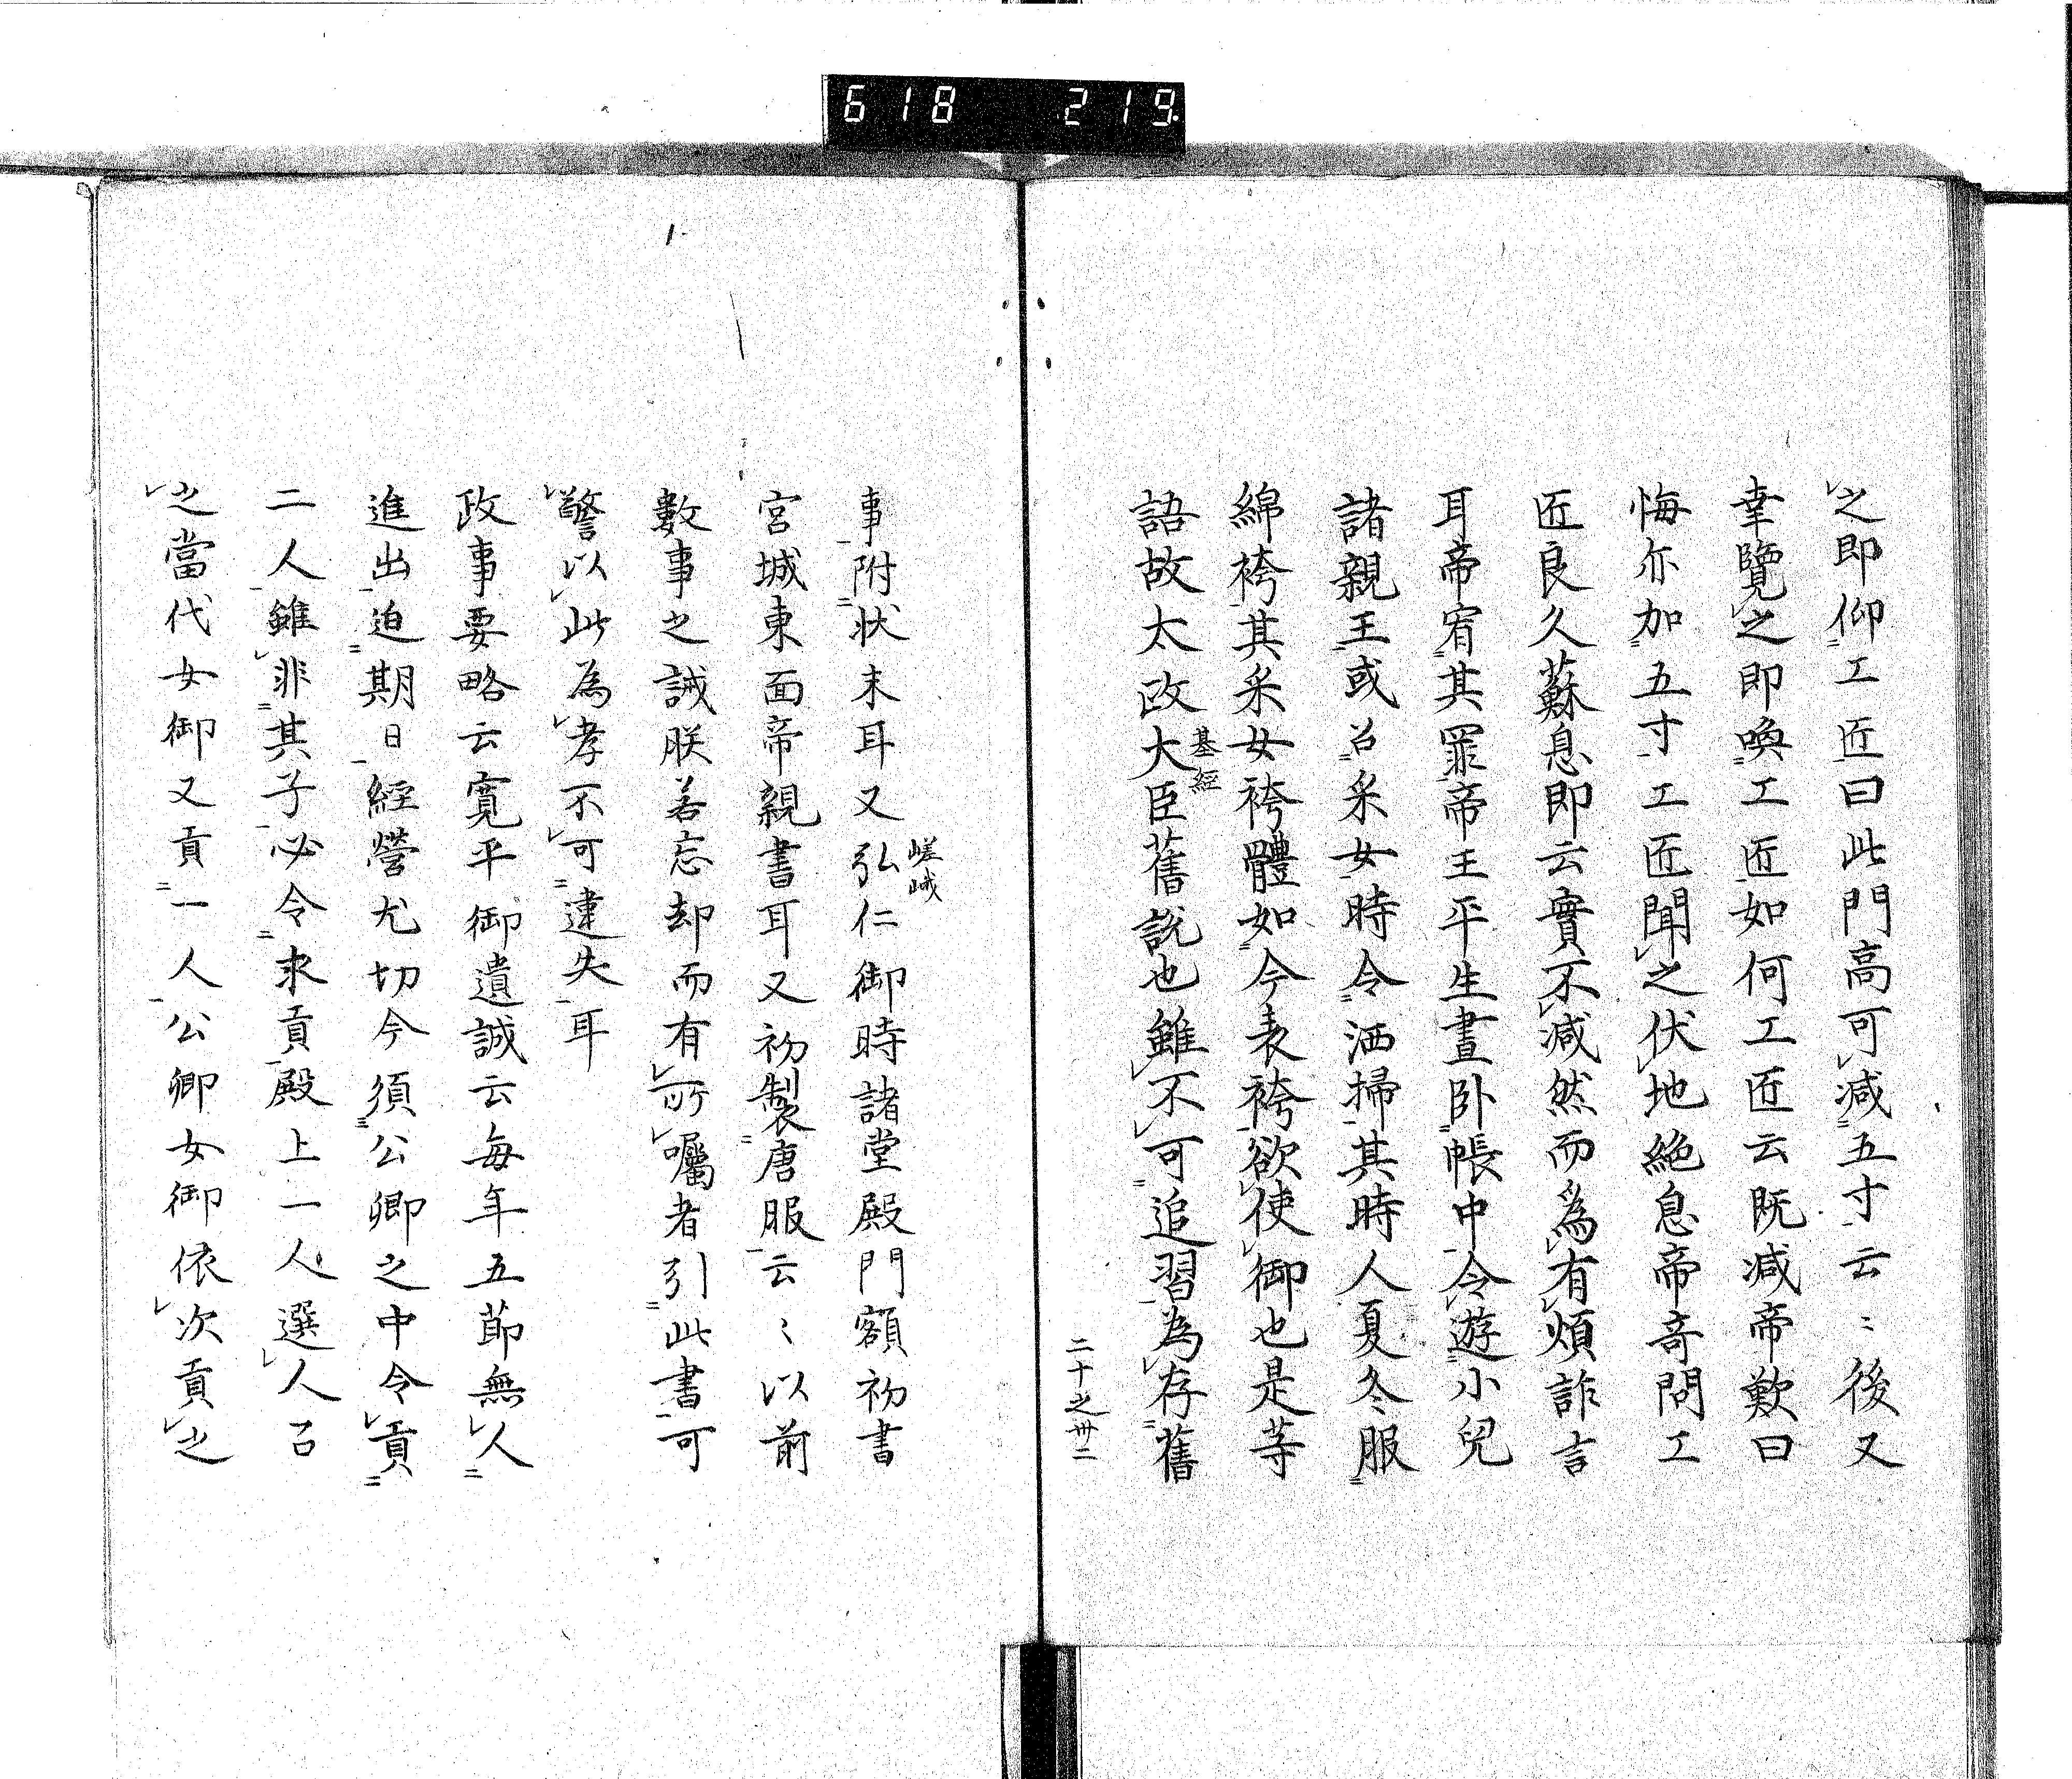 618 219
之即仰工匠曰此門高可减五寸云〻後又
幸覽之即喚工匠如何工匠云既减帝歎曰
悔尓加五寸工匠聞之伏地絶息帝奇問工
匠良久蘇息即云實不减然而為有煩詐言
耳帝宥其罪帝王平生晝卧帳中令遊小兒
諸親王或召采女時令洒掃其時人夏冬服
綿袴其采女袴體如今表袴欲使御也是等
語故太政大臣舊説也雖不可追習為存舊
基經
二十之卅二
事附状末耳又弘仁御時諸堂殿門額初書
嵯峨
宮城東面帝親書耳又初製唐服云〻以前
數事之誡朕若忘却而有所囑者引此書可
警以此為孝不可違失耳
政事要略云寛平御遺誡云毎年五節無人
進出迫期日經營尤切今須公卿之中令貢
二人雖非其子必令求貢殿上一人選人召
之當代女御又貢一人公卿女御依次貢之